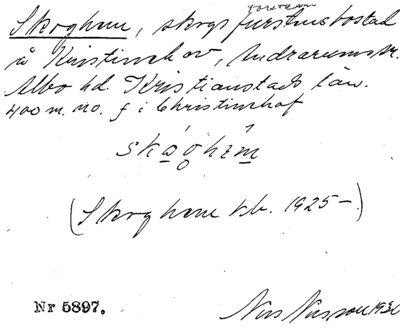 Skoghem, skogsförstnsbostad
å Kristinehov, Andrarumssn.
Albo hd. Kristianstads län.
400 m. no. f. i Christinehof
skọghem
(Skoghem kb. 1925–.)
Nr 5897.
Nils Nilsson 1930